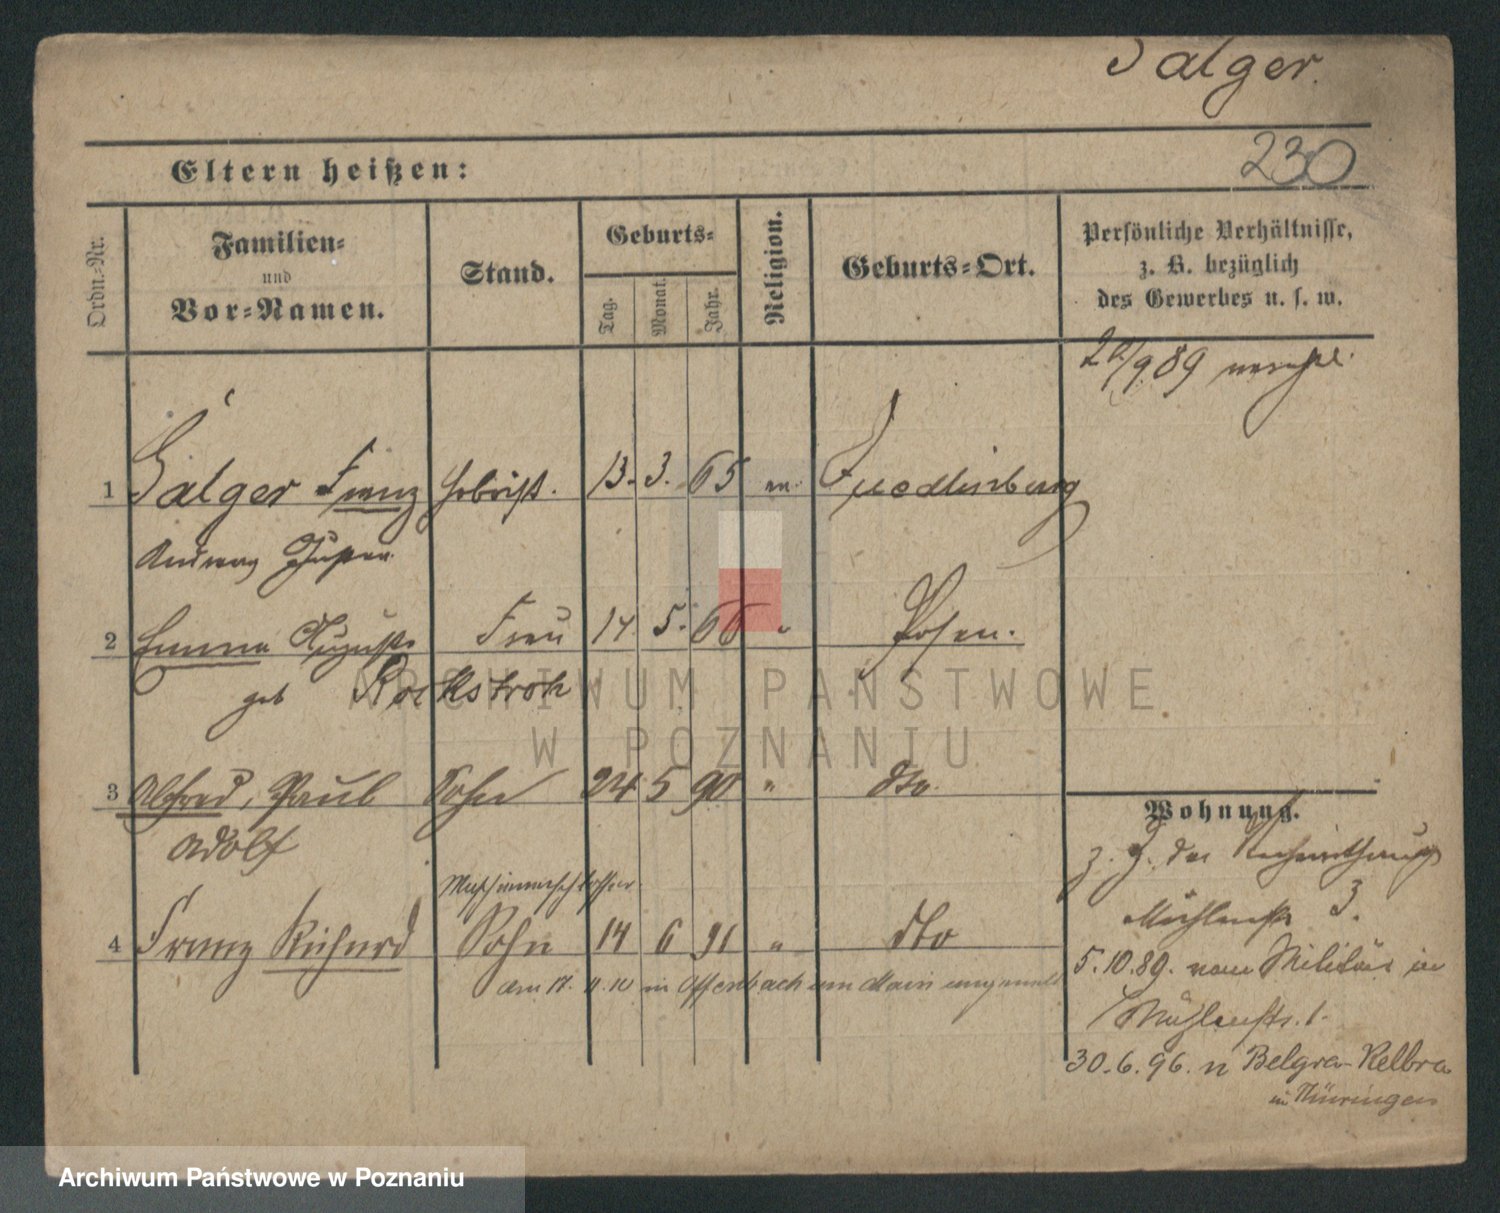 Salger.
230
Eltern heißen:
Ordn.-Nr.
Familien-
und
Vor-Namen.
Stand.
Geburts-
Tag.
Monat.
Jahr.
Religion.
Geburts-Ort.
Persönliche Verhältnisse,
z. B. bezüglich
des Gewerbes u. s. w.
/9 89
1 Salger Franz 13. 3. 65 ev.
2 Emma Auguste Frau 14. 5. 66 " Posen.
geb Rockstroh
3 Alfred, Paul Sohn 24 5 90 " dto
Adolf
Maschinenschlosser
4 Franz Richard Sohn 14 6 91 " dto
am 17. 11. 10 in Offenbach am Main angemeld
Wohnung.
z. Z. der
Mühlenstr 3.
5.10.89. vom Militär in
Mühlenstr. 1.
30.6.96. n Belgra-Kelbra
in Thüringen
ARCHIWUM PAŃSTWOWE
W POZNANIU
Archiwum Państwowe w Poznaniu